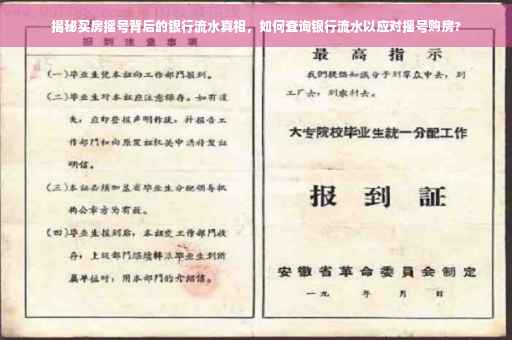 揭秘买房摇号背后的银行流水真相，如何查询银行流水以应对摇号购房?
报到注意事项
(一)毕业生凭本证向工作部门报到。
(二)毕业生对本证应注意保存。如有遗
失，应即登报声明作废，并报告工
作部门和向原发证机关申请补发证
明信。
(三)本证必须加盖省毕业生分配领导机
构公章方为有效。
(四)毕业生报到后，本证交工作部门收
存；上级部门
毕业生到所
属单位时，用本部门的介绍信。
最高指示
我们提倡知识分子到群众中去，到
工厂去，到农村去。
大专院校毕业生統一分配工作
报到証
安徽省革命委員会制定
一九 年 月 日